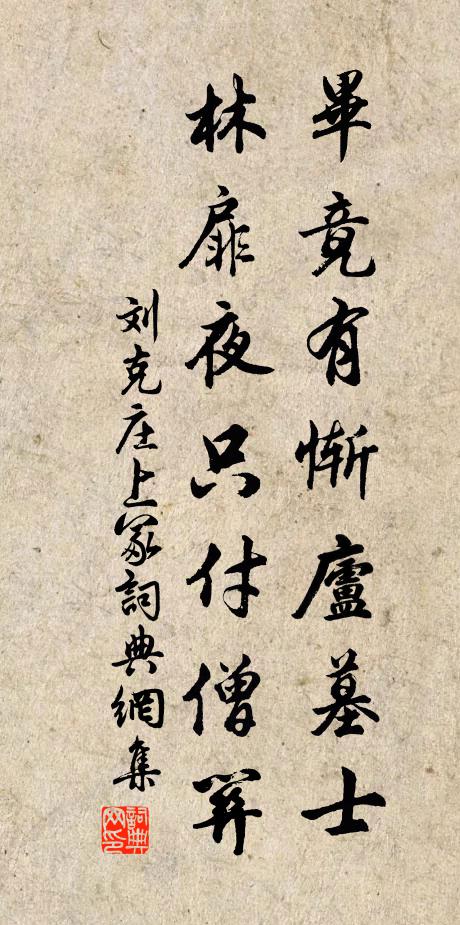 畢竟有慚廬墓士
林扉夜只付僧關
刘克庄上冢詞典網集
詞典
网印